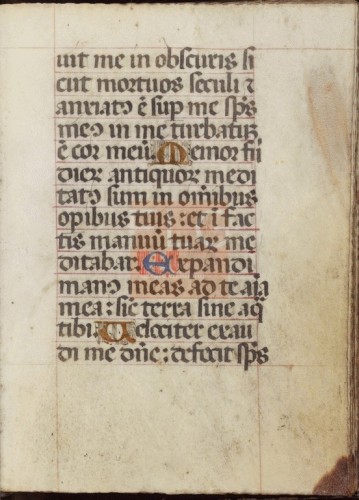 uit me in obscuris si
cut mortuos seculi ⁊
anxiatꝰ ē sup me sp̄s
meꝰ in me turbatū
ē cor meū. Memor fui
dieꝝ antiquoꝝ medi
tatꝰ sum in om̄ibus
opibus tuis : et ī fac
tis manuū tuaꝝ me
ditabar. Expandi
manꝰ meas ad te aīa
mea : sic̄ terra sine aq̄
tibi. Uelociter exau
di me dn̄e : defecit sp̄s